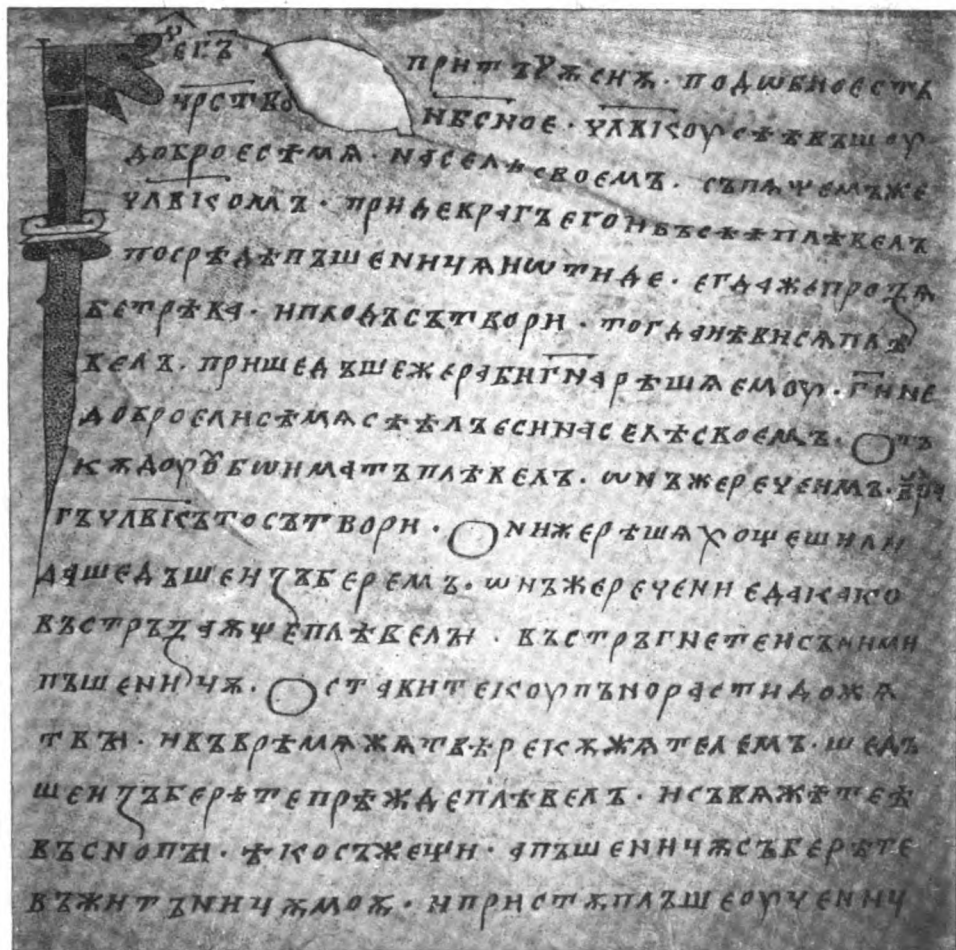 Рег҃ъ притъчѫсиѫ · подѡбноесть
цр҃ство нб҃сное · чл҃вкоусѣѣвъшоу
доброесѣмѧ · населѣсвоемъ · съпѧщемъже
чл҃вкомъ · придеврагъегоивъсѣѣплѣвелъ
посрѣдѣпъшеницѧиѡтиде · егдажепрозѧ
бетрѣва · иплодъсътвори · тогдаиѣвисѧплѣ
велъ · пришедъшежерабиг҃нарѣшѧемоу · г҃ине
доброелисѣмѧсѣѣлъесинаселѣсвоемъ · Отъ
кѫдоуꙋбѡиматъплѣвелъ · ѡнъжеречеимъ · вра
гъчл҃вкътосътвори · Онижерѣшѧхощешили
дашедъшеизъберемъ · ѡнъжеречениедакако
въстръзаѫщеплѣвелꙑ · въстръгнетеисъними
пъшеницѫ · Оставитекоупънорастидожѧ
твꙑ · ивъврѣмѧжѧтвѣрекѫжѧтелемъ · шедъ
шеизъберѣтепрѣждеплѣвелъ · исъвѧжѣтеѣ
въснопꙑ · ѣкосъжещи · апъшеницѫсъберѣте
въжитъницѫмоѫ · ипристѫплъшеоучениц